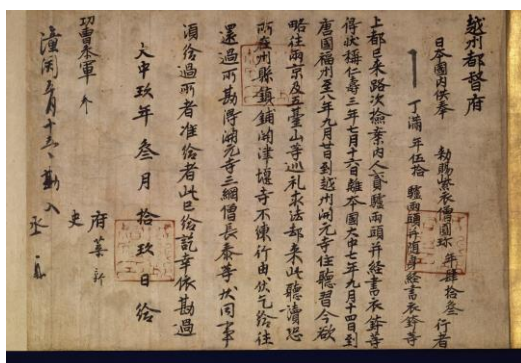 越州都督府
日本國内供奉 勅賜紫衣僧圓珎 年肆拾叁 行者
丁滿 年伍拾 驢兩頭并隨身經書衣鉢等
上都已來路次檢案内人貳驢兩頭并經書衣鉢等
得狀稱仁壽三年七月十六日離本國大中七年九月十四日到
唐國福州至八年九月廿日到越州開元寺住聽習今欲
略往兩京及五臺山等巡礼求法却來此聽讀恐
所在州縣鎮鋪關津堰寺不練行由伏乞給往
還過所勘得開元寺三綱僧長泰等狀同事
須給過所者准給者此已給訖幸依勘過
大中玖年叁月拾玖日給
府葉新
功曹參軍
史
潼關五月十五日勘入
丞